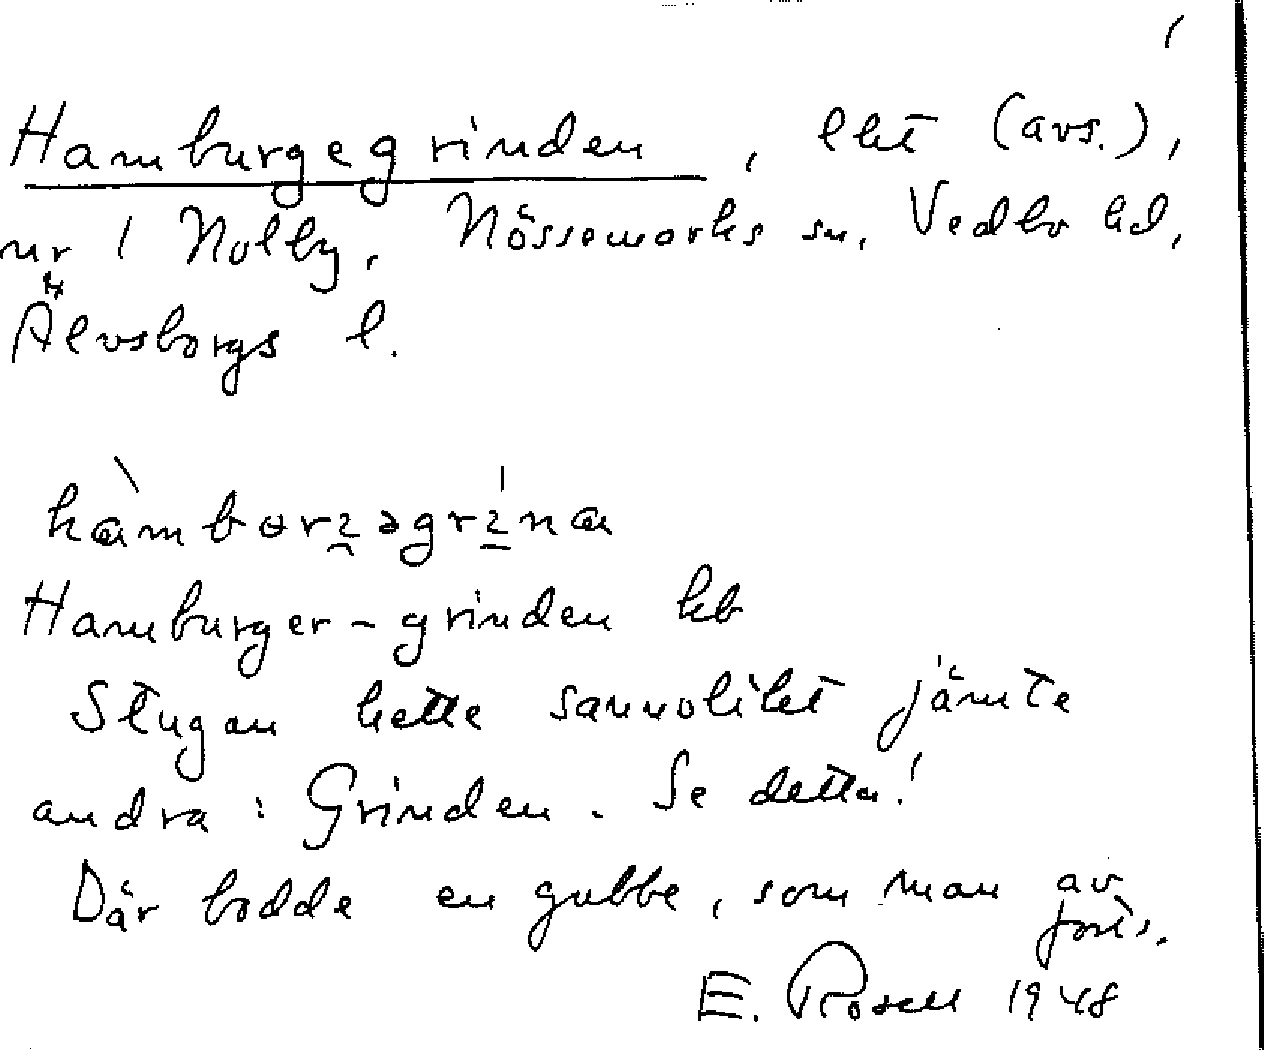 Hamburgegrinden, lht (avs.),
ur 1 Nolby, Nössemarks sn, Vedbo hd,
Älvsborgs l.
Hamburger-grinden hb
Stugan hette sannolikt jämte
andra: Grinden. Se detta!
Där bodde en gubbe, som man av
forts.
E. Rosell 1948